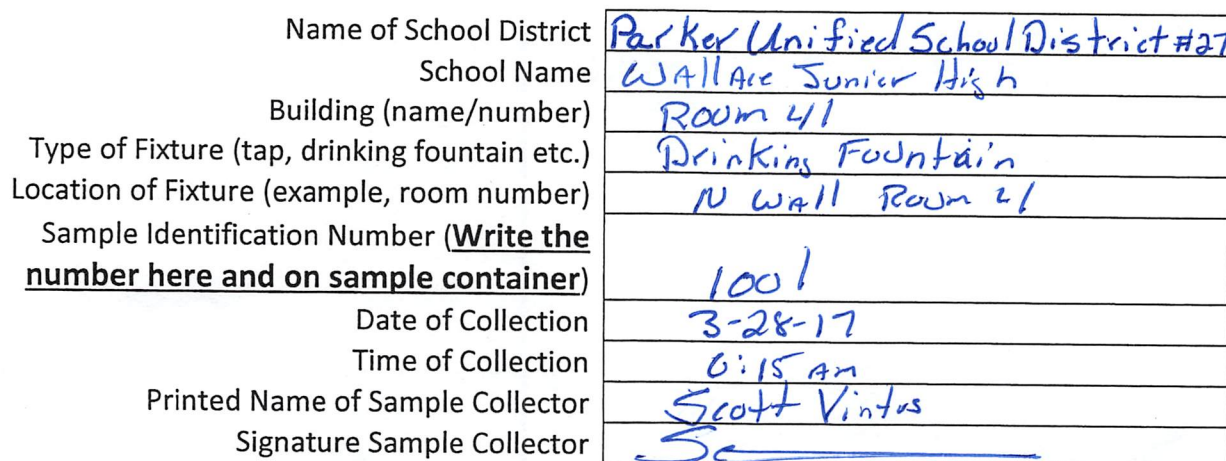 Name of School District Parker Unified School District #27
School Name Wallace Junior High
Building (name/number) Room 41
Type of Fixture (tap, drinking fountain etc.) Drinking Fountain
Location of Fixture (example, room number) N Wall Room
Sample Identification Number (Write the
number here and on sample container) 1001
Date of Collection 3-28-17
Time of Collection 6:15 AM
Printed Name of Sample Collector Scott
Signature Sample Collector